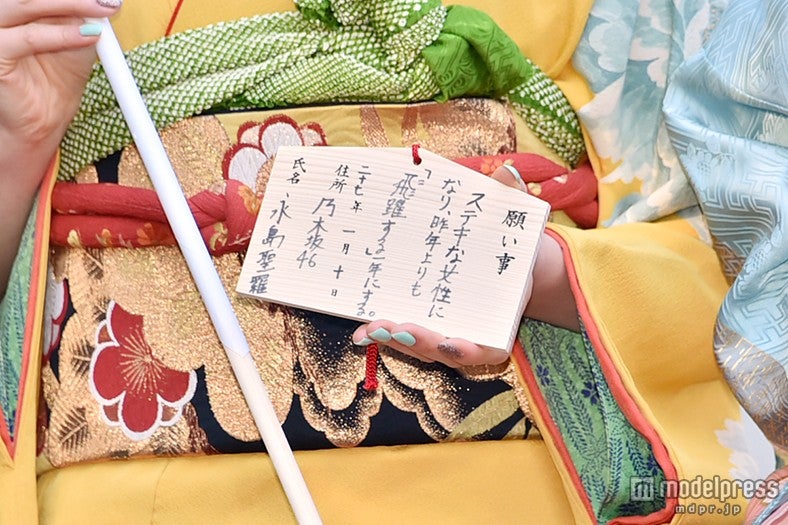 願い事
ステキな女性に
なり、昨年よりも
「飛躍する」一年にする。
二十七年 一月十日
住所 乃木坂46
氏名 永島聖羅
modelpress
mdpr.jp